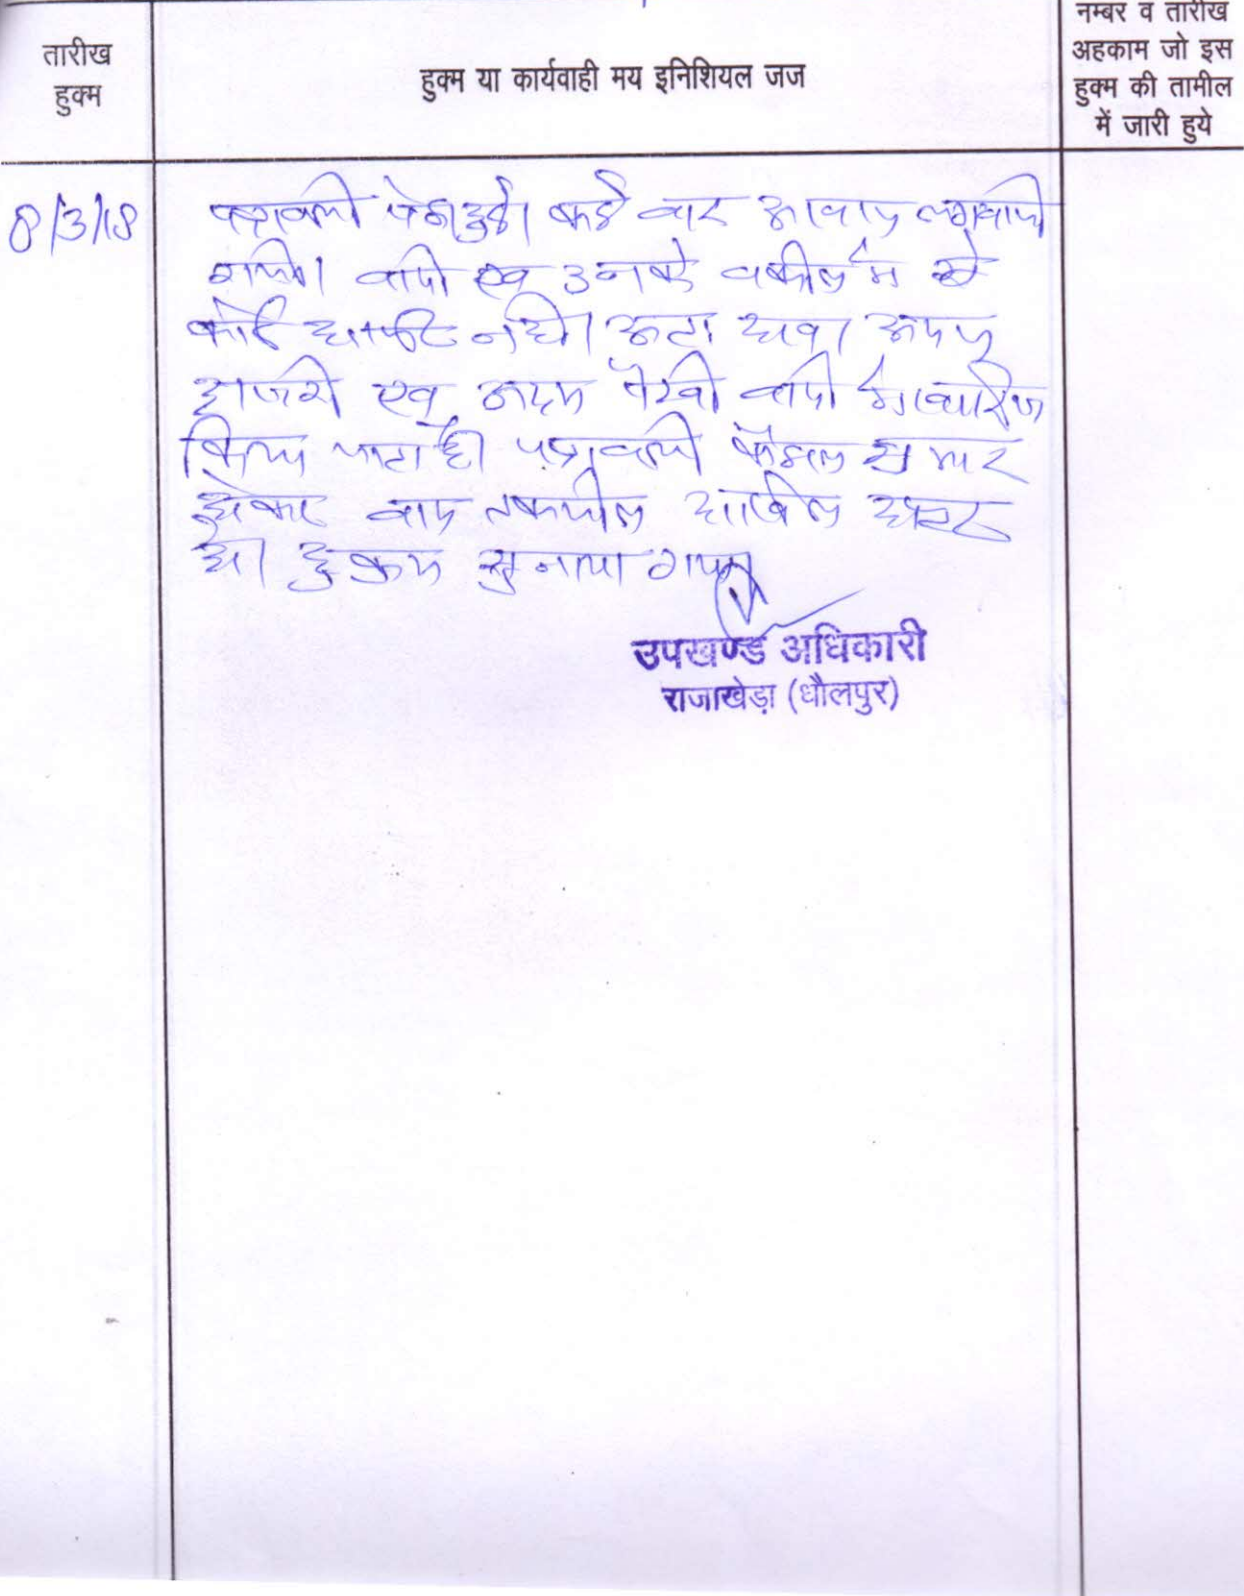 तारीख
हुक्म
हुक्म या कार्यवाही मय इनिशियल जज
नम्बर व तारीख
अहकाम जो इस
हुक्म की तामील
में जारी हुये
8/3/18
पत्रावली पेश हुई। कई बार आवाज लगवायी
गयी। वादी एवं उनके वकील में से
कोई हाजिर नहीं। अतः दावा अदम
हाजरी एवं अदम पैरवी वादी में खारिज
किया जाता है। पत्रावली फैसल शुमार
होकर बाद तकमील दाखिल दफ्तर
हो। हुक्म सुनाया गया।
उपखण्ड अधिकारी
राजाखेड़ा (धौलपुर)